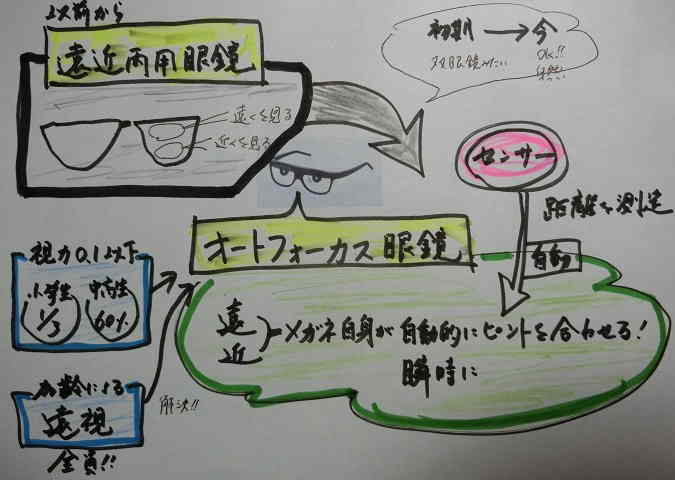 以前から
遠近両用眼鏡
遠くを見る
近くを見る
初期 → 今
双眼鏡みたい
OK!!
自然
センサー
距離を測定
自動
オートフォーカス眼鏡
遠
近
=メガネ自身が自動的にピントを合わせる!
瞬時に
視力0.1以下
小学生
1/3
中高生
60%
加齢による
遠視
全員!!
解決!!